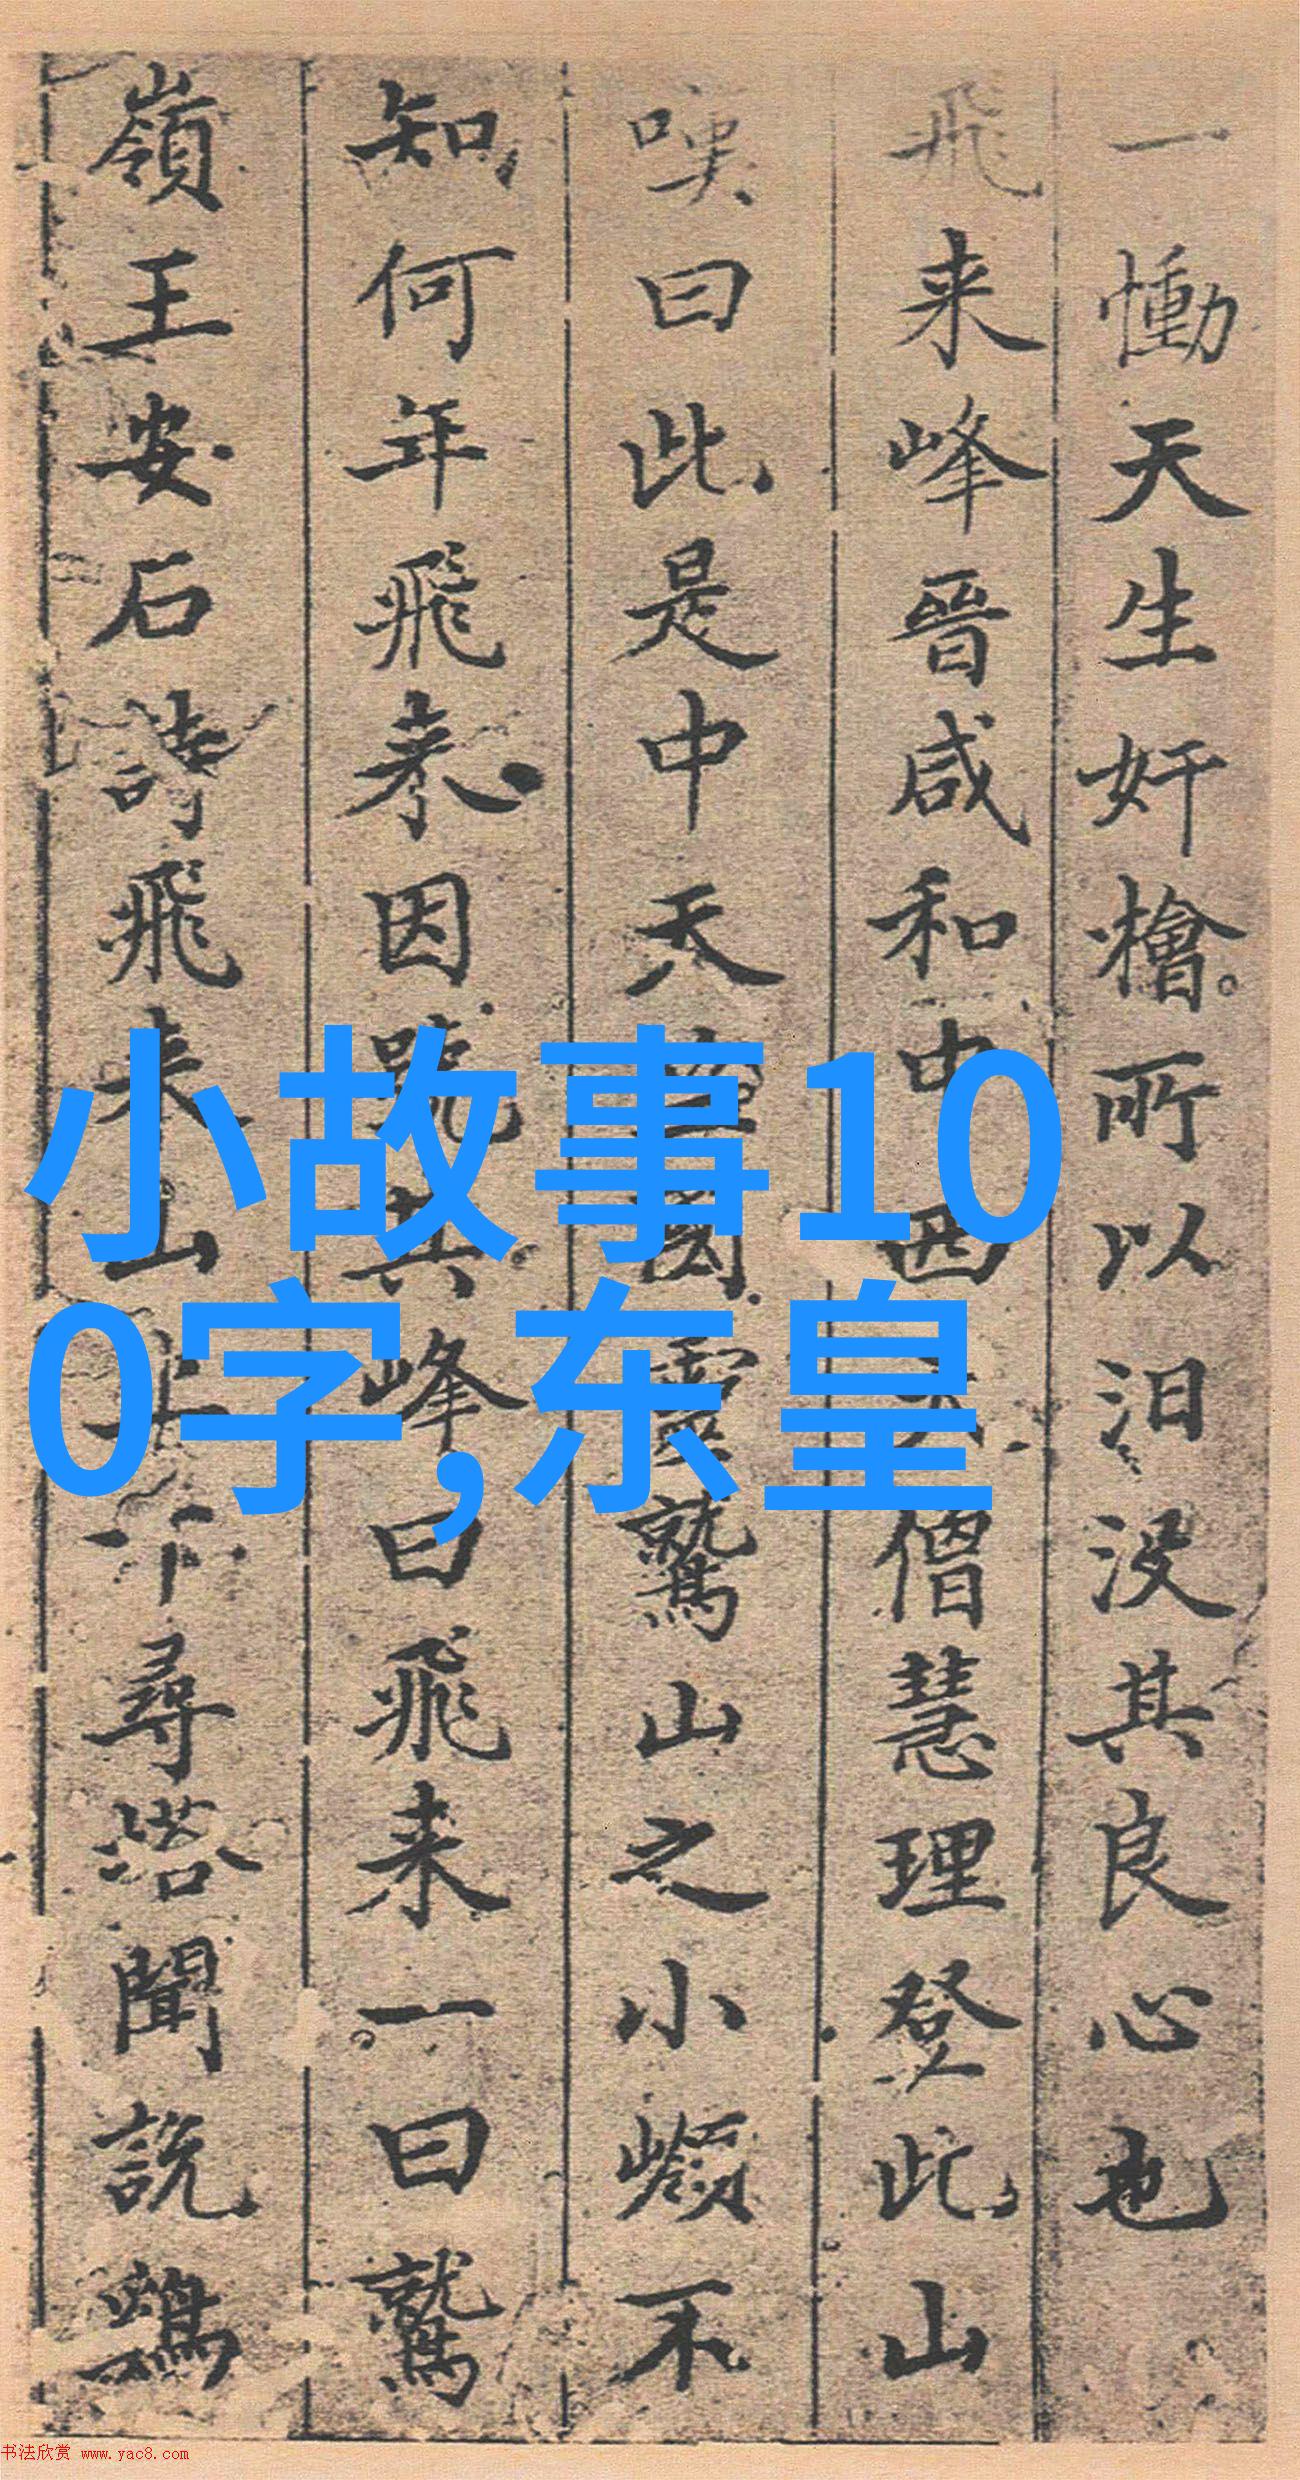 一慟天生奸檜所以汨没其良心也
飛来峰晉咸和中西僧慧理登此山
嘆曰此是中天國靈鷲山之小嶺不
知何年飛来因號其峰曰飛来一曰鷲
嶺王安石詩飛来山上千尋塔聞説鷄
小故事100
0字,东皇
书法欣赏 www.yac8.com